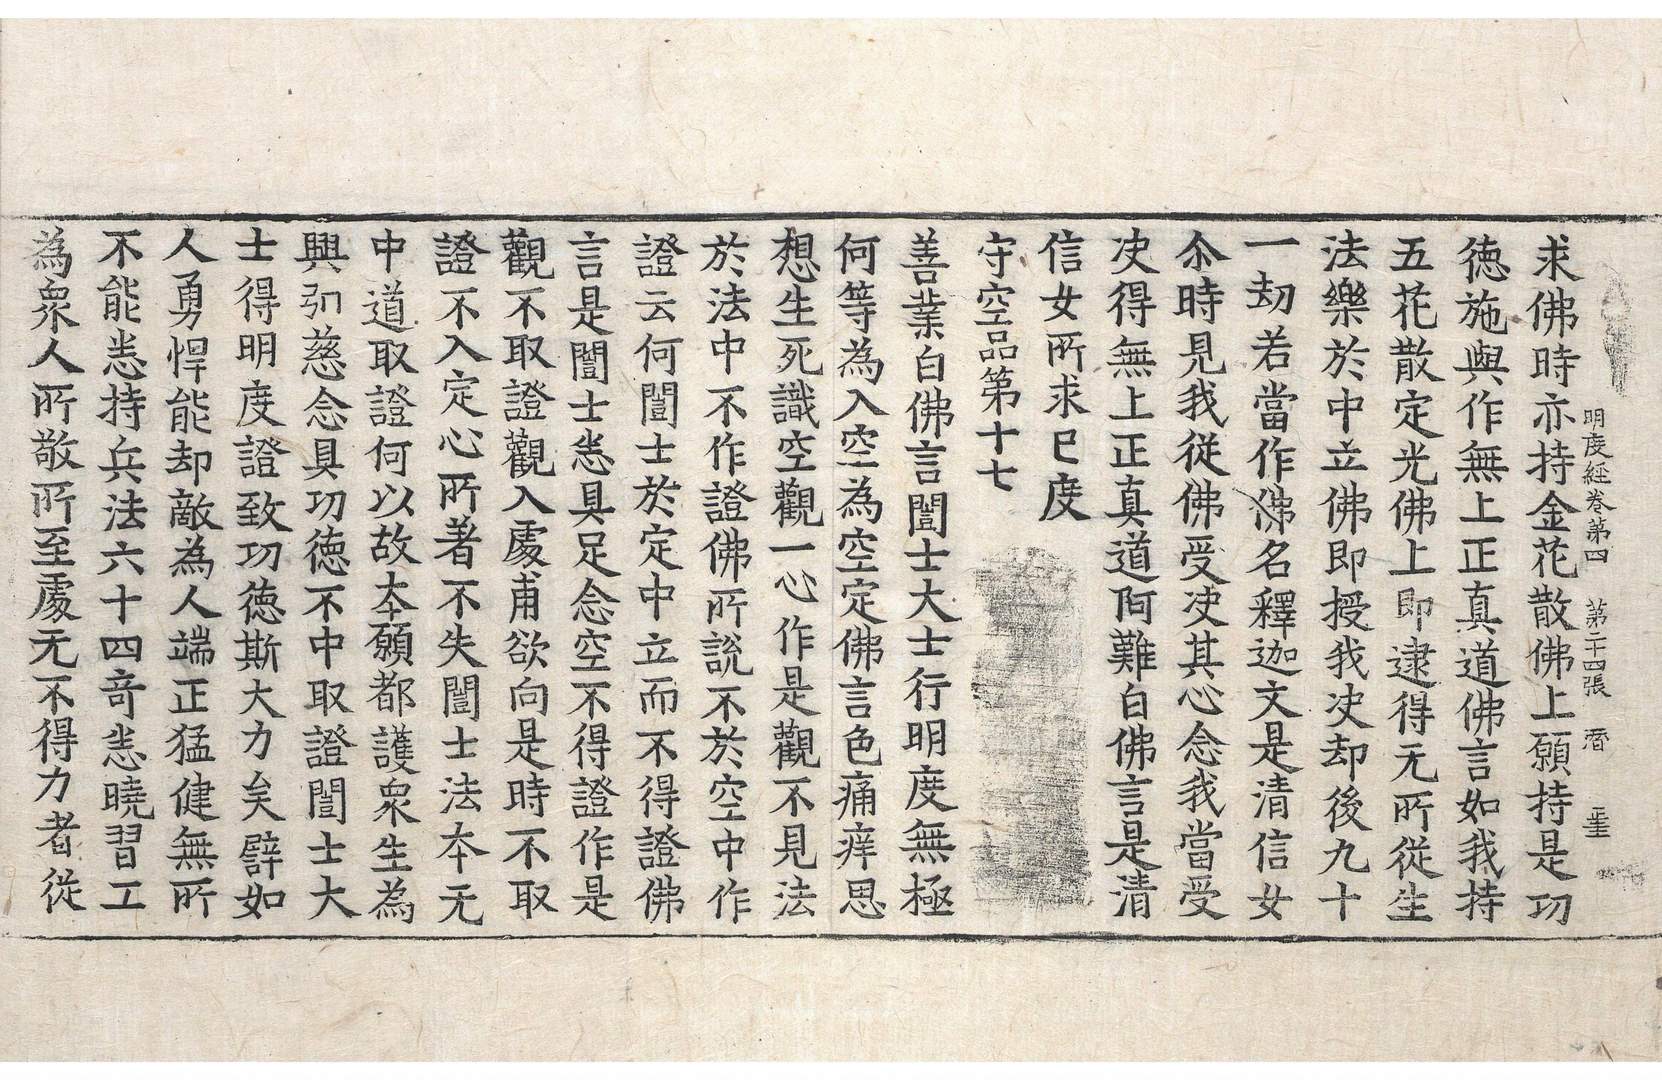 明度經卷第四　第二十四張　㬱　𠁅
求佛時亦持金花散佛上願持是功
徳施與作無上正真道佛言如我持
五花散定光佛上即逮得无所從生
法樂於中立佛即授我决却後九十
一劫若當作佛名釋迦文是清信女
尒時見我從佛受决其心念我當受
决得無上正真道阿難白佛言是清
信女所求已度
守空品第十七
善業白佛言闓士大士行明度無極
何等為入空為空定佛言色痛痒思
想生死識空觀一心作是觀不見法
於法中不作證佛所說不於空中作
證云何闓士於定中立而不得證佛
言是闓士悉具足念空不得證作是
觀不取證觀入處甫欲向是時不取
證不入定心所著不失闓士法本无
中道取證何以故本願都護衆生為
興弘慈念具功徳不中取證闓士大
士得明度證致功徳斯大力矣譬如
人勇悍能却敵為人端正猛健無所
不能悉持兵法六十四竒悉曉習工
為衆人所敬所至處无不得力者從